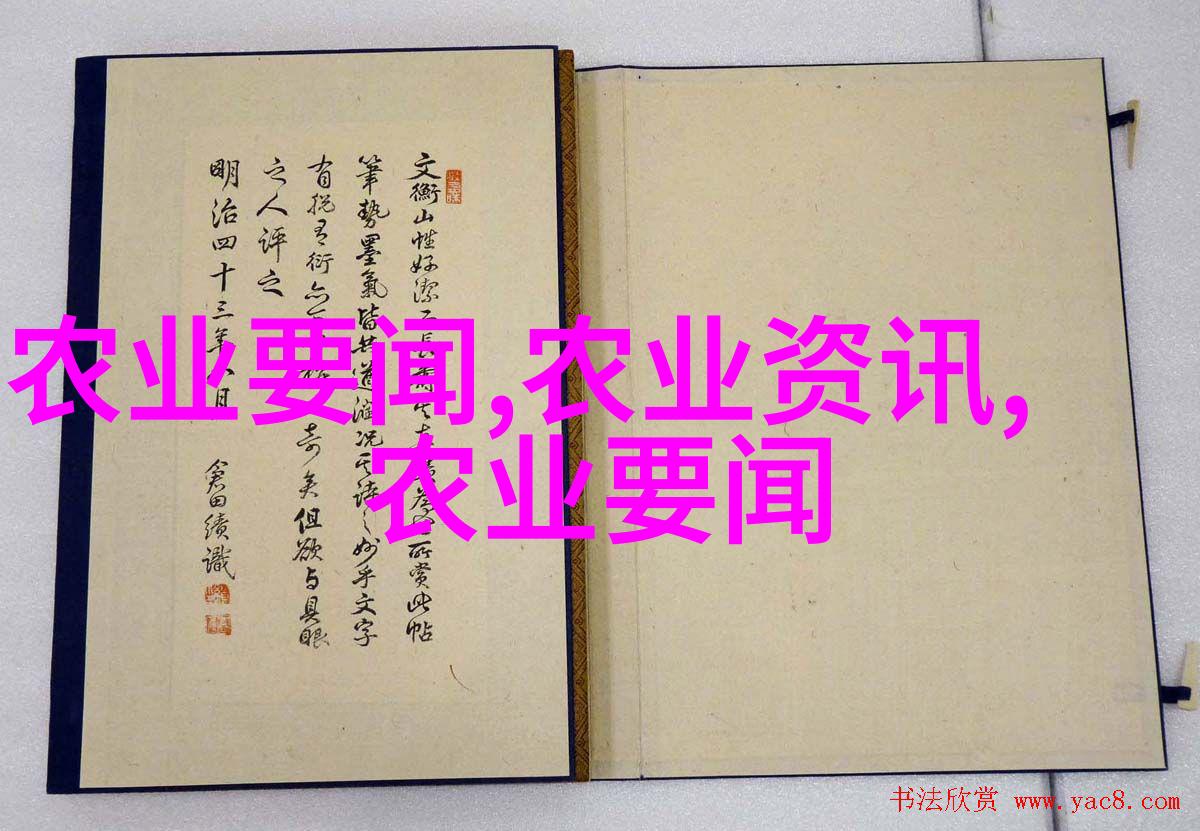 文衡山性好潔長所賞此帖
筆勢墨氣皆況其詩之妙乎文字
有衍奇矣但欲与具眼
之人評之
明治四十三年八月 倉田績識
农业要闻,农业资讯,
农业要闻
书法欣赏 www.yac8.com